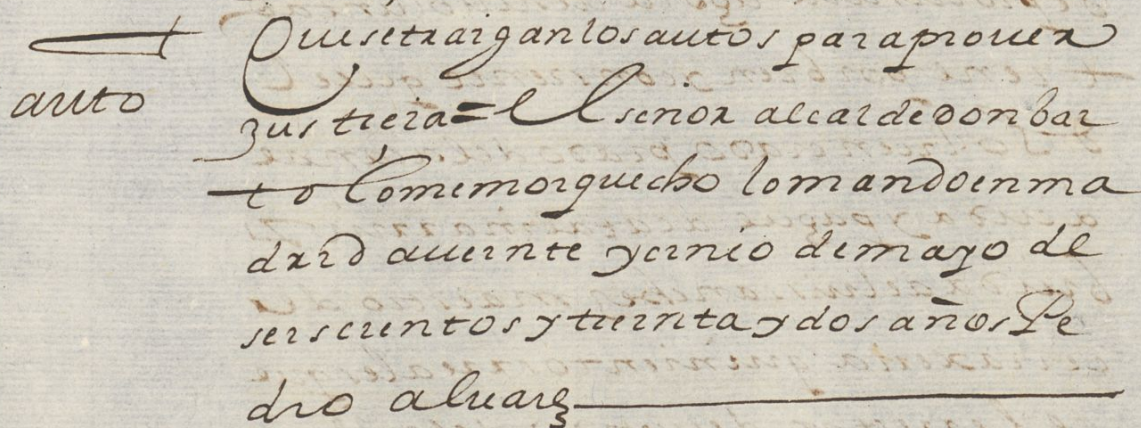 Que se traigan los autos para prouer
auto
Justicia = El señor alcalde don bar
tolome morquecho lo mando en ma
drid a ueinte y cinco de mayo de
seiscientos y treinta y dos años Pe
dro aluarez